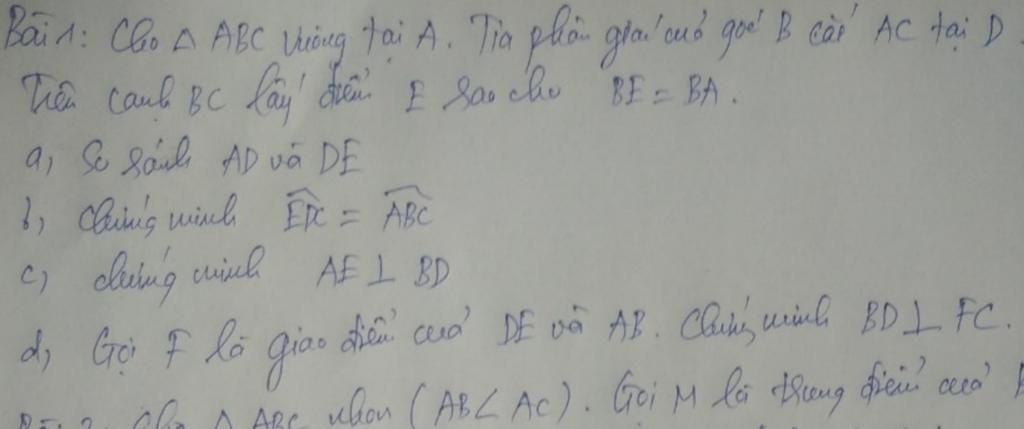 Bài 1: Cho △ ABC vuông tại A. Tia phân giác của góc B cắt AC tại D.
Trên cạnh BC lấy điểm E sao cho BE = BA.
a, So sánh AD và DE
b, Chứng minh \widehat{EDC} = \widehat{ABC}
c, chứng minh AE ⊥ BD
d, Gọi F là giao điểm của DE và AB. Chứng minh BD ⊥ FC.
Bài 2: Cho △ ABC nhọn (AB < AC). Gọi M là trung điểm của